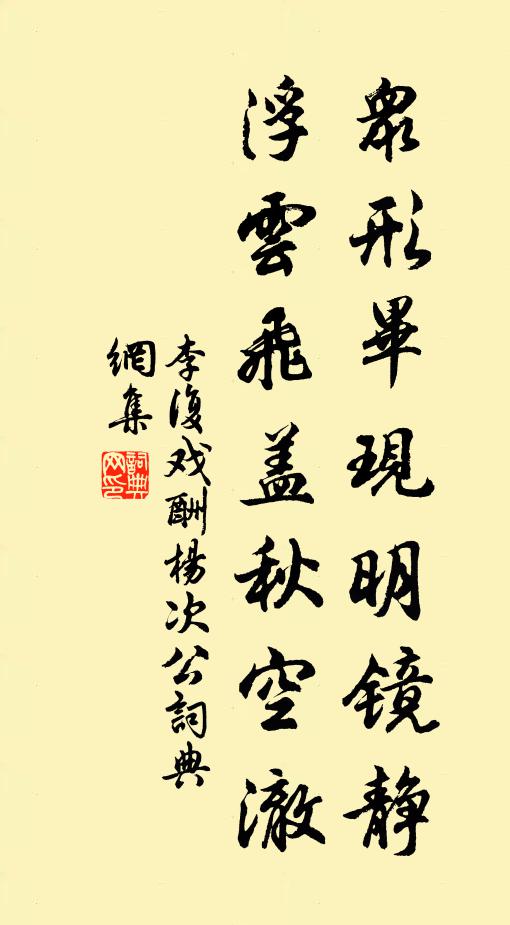 眾形畢現明镜静
浮雲飛盖秋空澈
李復戏酬楊次公詞典
網集
詞典网印